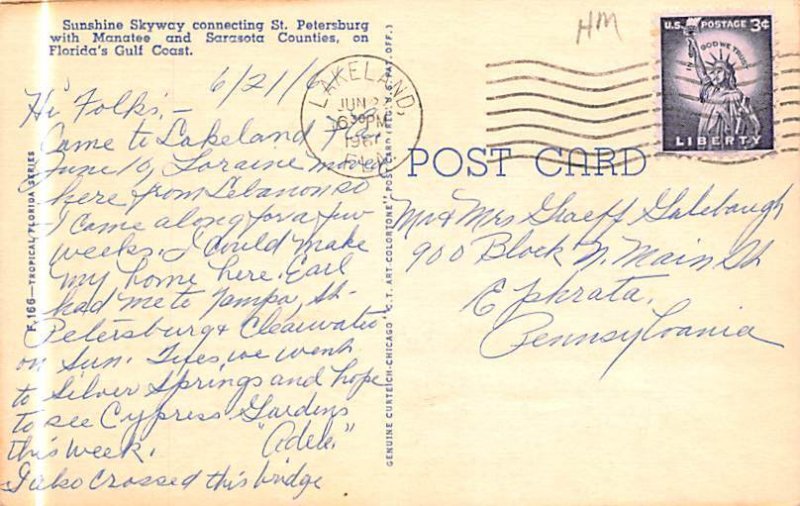 Sunshine Skyway connecting St. Petersburg
with Manatee and Sarasota Counties, on
Florida's Gulf Coast.
HM
U.S. POSTAGE 3¢
IN GOD WE TRUST
LIBERTY
LAKELAND,
JUN 2
6 30 PM
196
6/21/6
Hi Folks, —
Came to Lakeland Fla
June 10, Loraine moved
here from Lebanon so
I came along for a few
weeks. I could make
my home here. Earl
had me to Tampa, St-
Petersburg & Clearwater
on Sun. Tues, we went
to Silver Springs and hope
to see Cypress Gardens
this week. "Adele"
I also crossed this bridge
F.166—TROPICAL FLORIDA SERIES
GENUINE CURTEICH-CHICAGO "C.T. ART-COLORTONE" POST CARD (REG. U.S. PAT. OFF.)
POST CARD
Mr & Mrs Graeff Galebaugh
900 Block N. Main St
Ephrata,
Pennsylvania